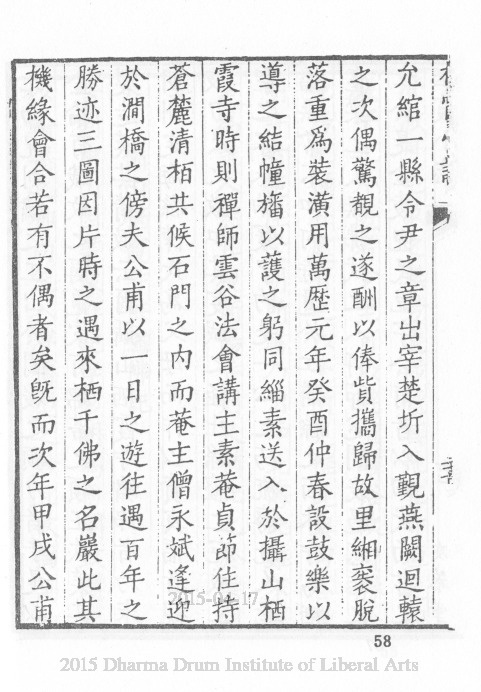 允綰一縣令尹之章出宰楚圻入覲燕闕迴轅
之次偶驚覩之遂酬以俸貲攜歸故里緗袠脫
落重爲裝潢用萬歷元年癸酉仲春設鼓樂以
導之結幢旛以護之躬同緇素送入於攝山栖
霞寺時則禪師雲谷法會講主素菴貞節住持
蒼麓清栢共候石門之內而菴主僧永斌逢迎
於澗橋之傍夫公甫以一日之遊往遇百年之
勝迹三圖因片時之遇來栖千佛之名巖此其
機緣會合若有不偶者矣旣而次年甲戌公甫
58
2015-04-17
2015 Dharma Drum Institute of Liberal Arts